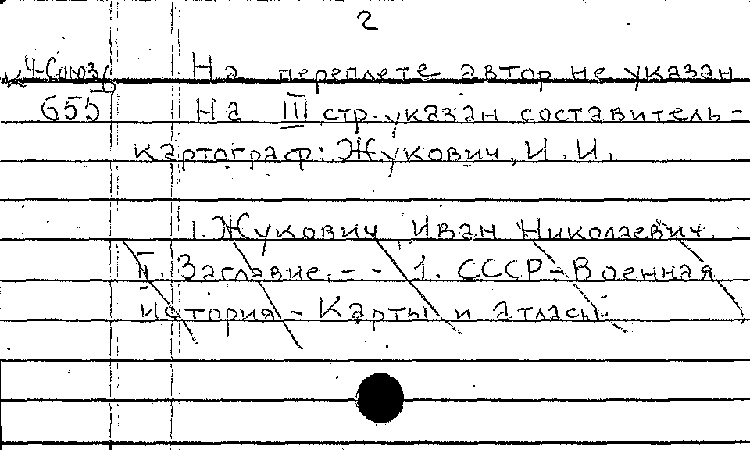 2
Ч-Союз б На переплете автор не указан
655 На III стр. указан составитель-
картограф: Жукович, И. И.
1. Жукович, Иван Николаевич.
II. Заглавие. - - 1. СССР-Военная
история - Карты и атласы.